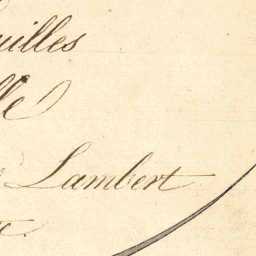 uilles
lle
Lambert